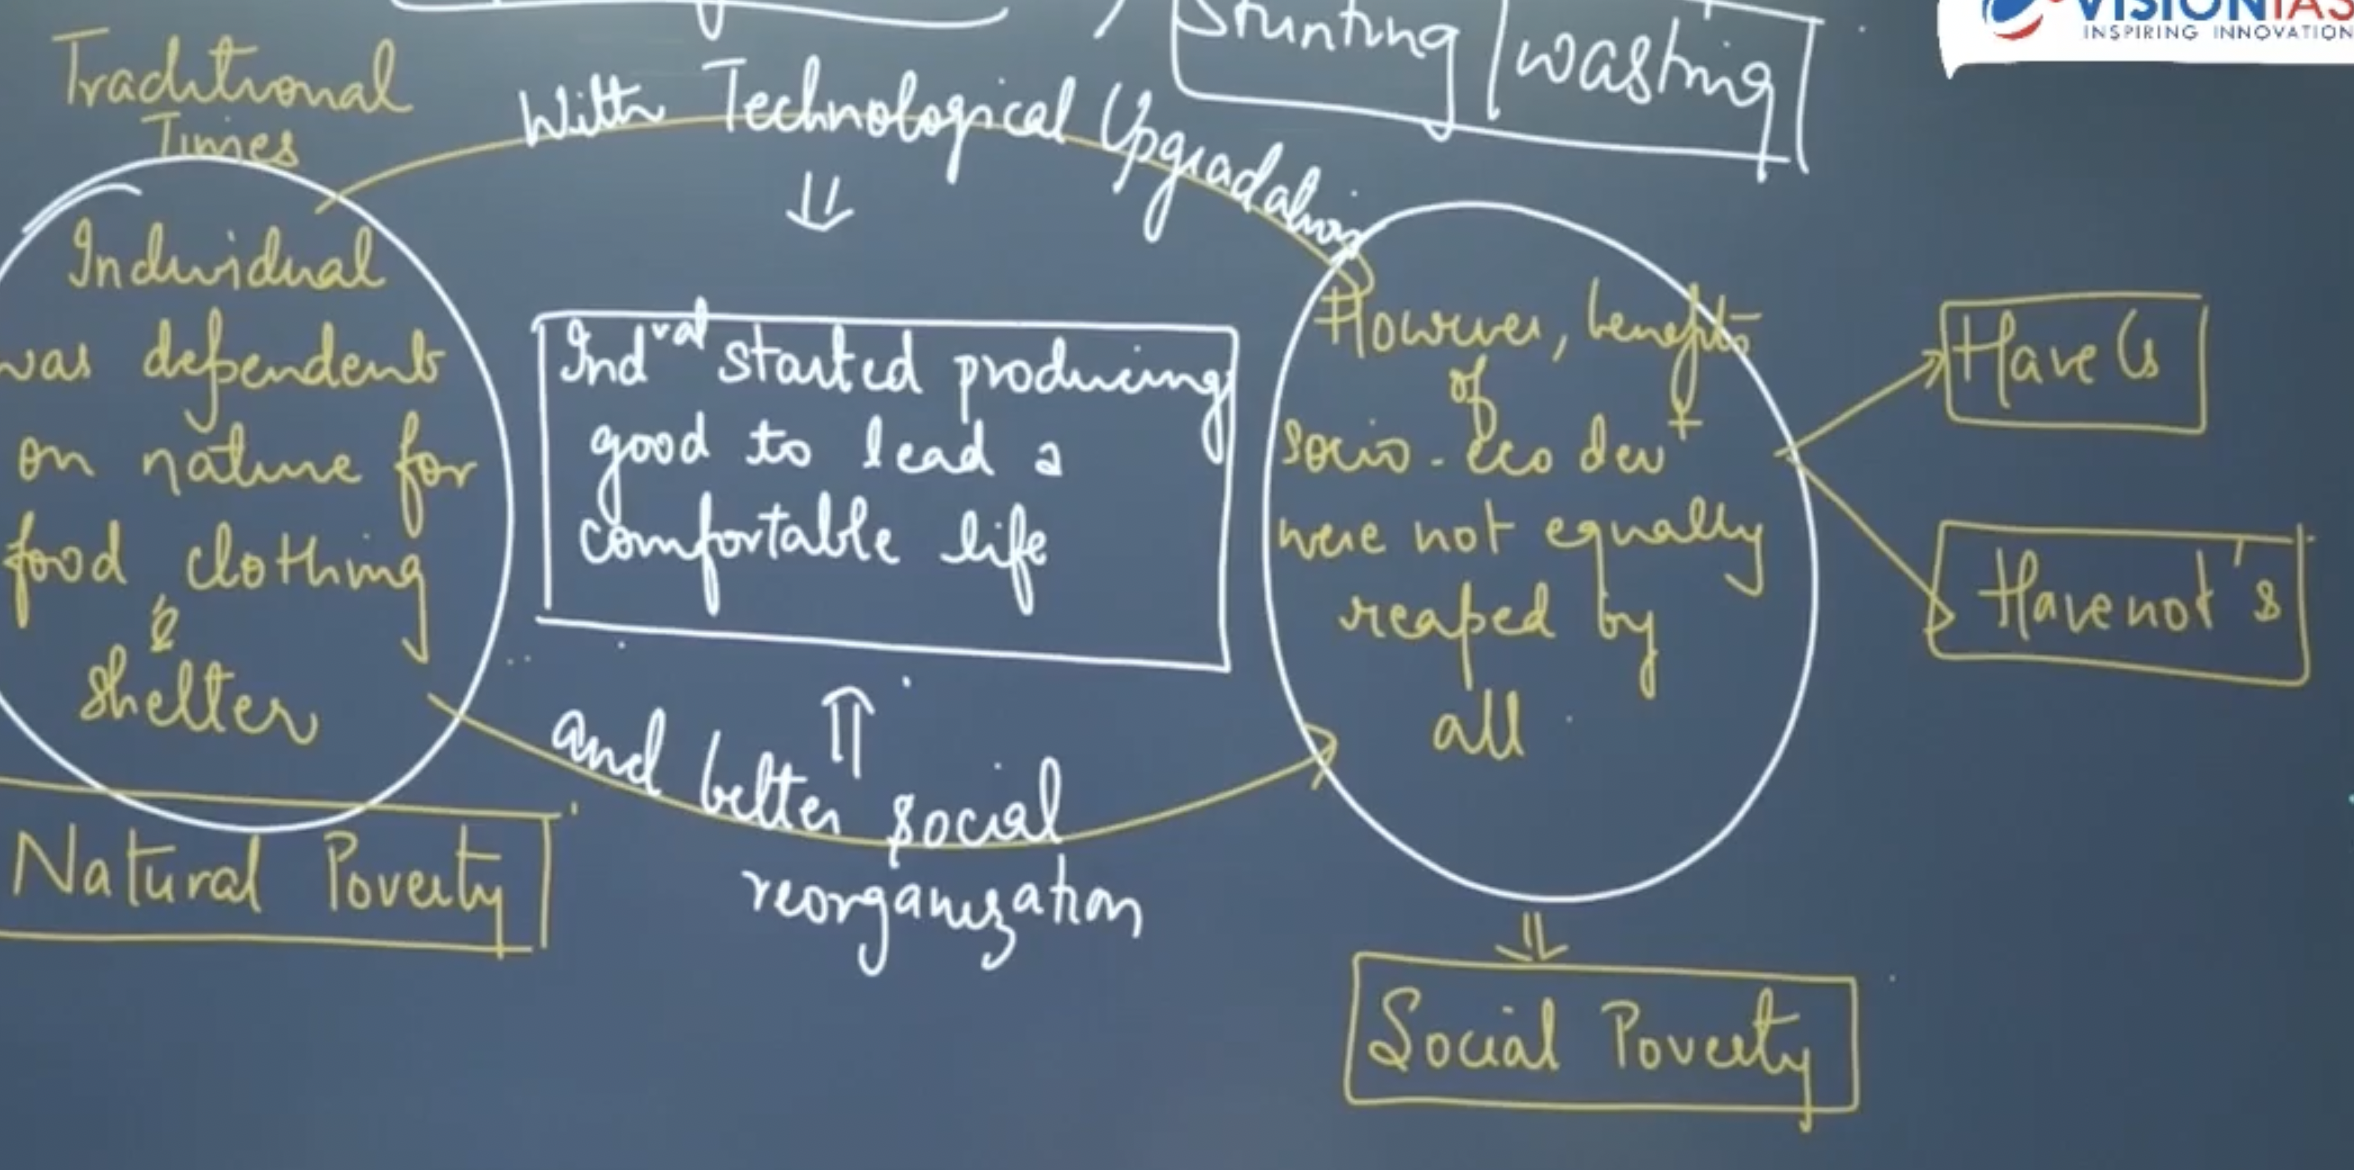 Stunting
wasting
VISIONIAS
INSPIRING INNOVATION
Traditional
Times
With Technological Upgradation
Individual
was dependent
on nature for
food clothing
&
shelter
Natural Poverty
Indval started producing
good to lead a
comfortable life
and better social
reorganization
However, benefits
of
socio-eco devt
were not equally
reaped by
all
Have's
Have not's
Social Poverty